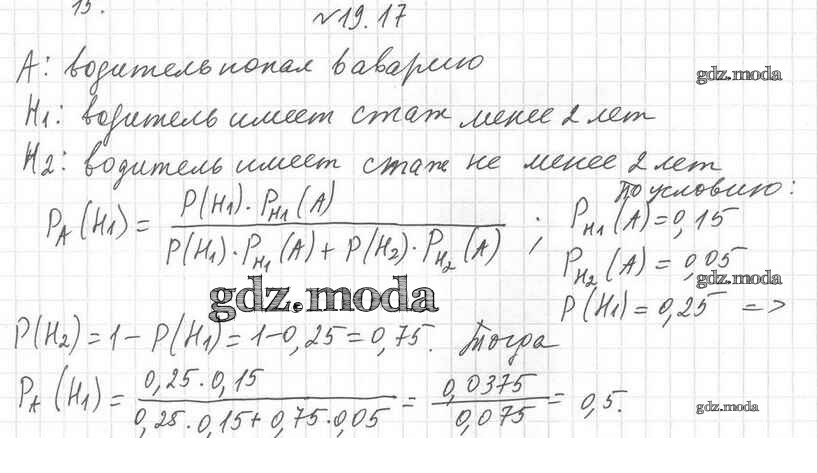 15.
№19.17
A: водитель попал в аварию
gdz.moda
H1: водитель имеет стаж менее 2 лет
H2: водитель имеет стаж не менее 2 лет
По условию:
P_A(H1) = P(H1)·P_H1(A) / (P(H1)·P_H1(A) + P(H2)·P_H2(A)) ; P_H1(A) = 0,15
P_H2(A) = 0,05
gdz.moda
gdz.moda
P(H1) = 0,25 =>
P(H2) = 1 − P(H1) = 1−0,25 = 0,75. Тогда
P_A(H1) = 0,25·0,15 / (0,25·0,15 + 0,75·0,05) = 0,0375 / 0,075 = 0,5.
gdz.moda